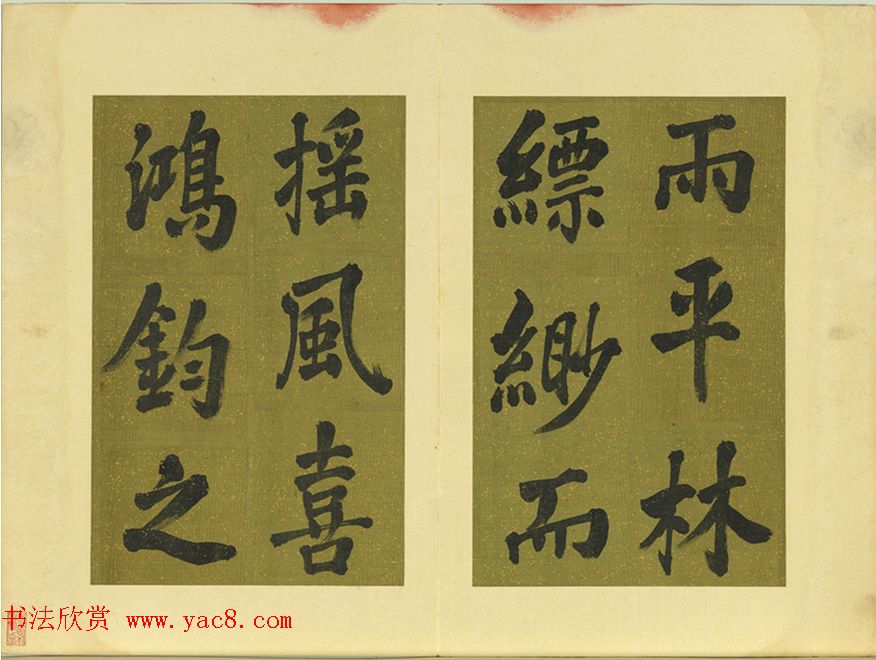 雨平林
縹緲而
摇風喜
鴻鈞之
书法欣赏 www.yac8.com